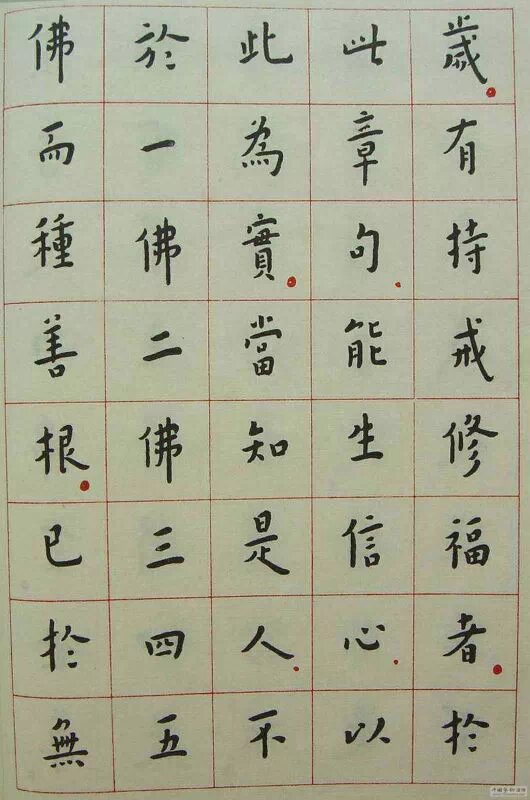 歲有持戒修福者於
此章句能生信心以
此為實當知是人不
於一佛二佛三四五
佛而種善根已於無